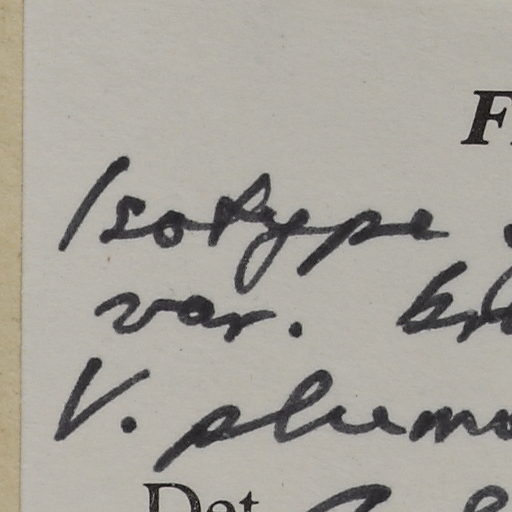 F
Isotype
var.
V. plumo
Det.